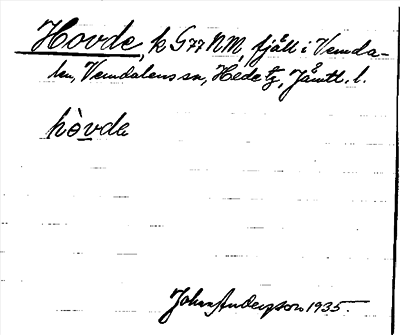 Hovde, k G77 NM, fjäll i Vemda-
len, Vemdalens sn, Hede tg, Jämtl. l.
hòvde
John Anderzson 1935.